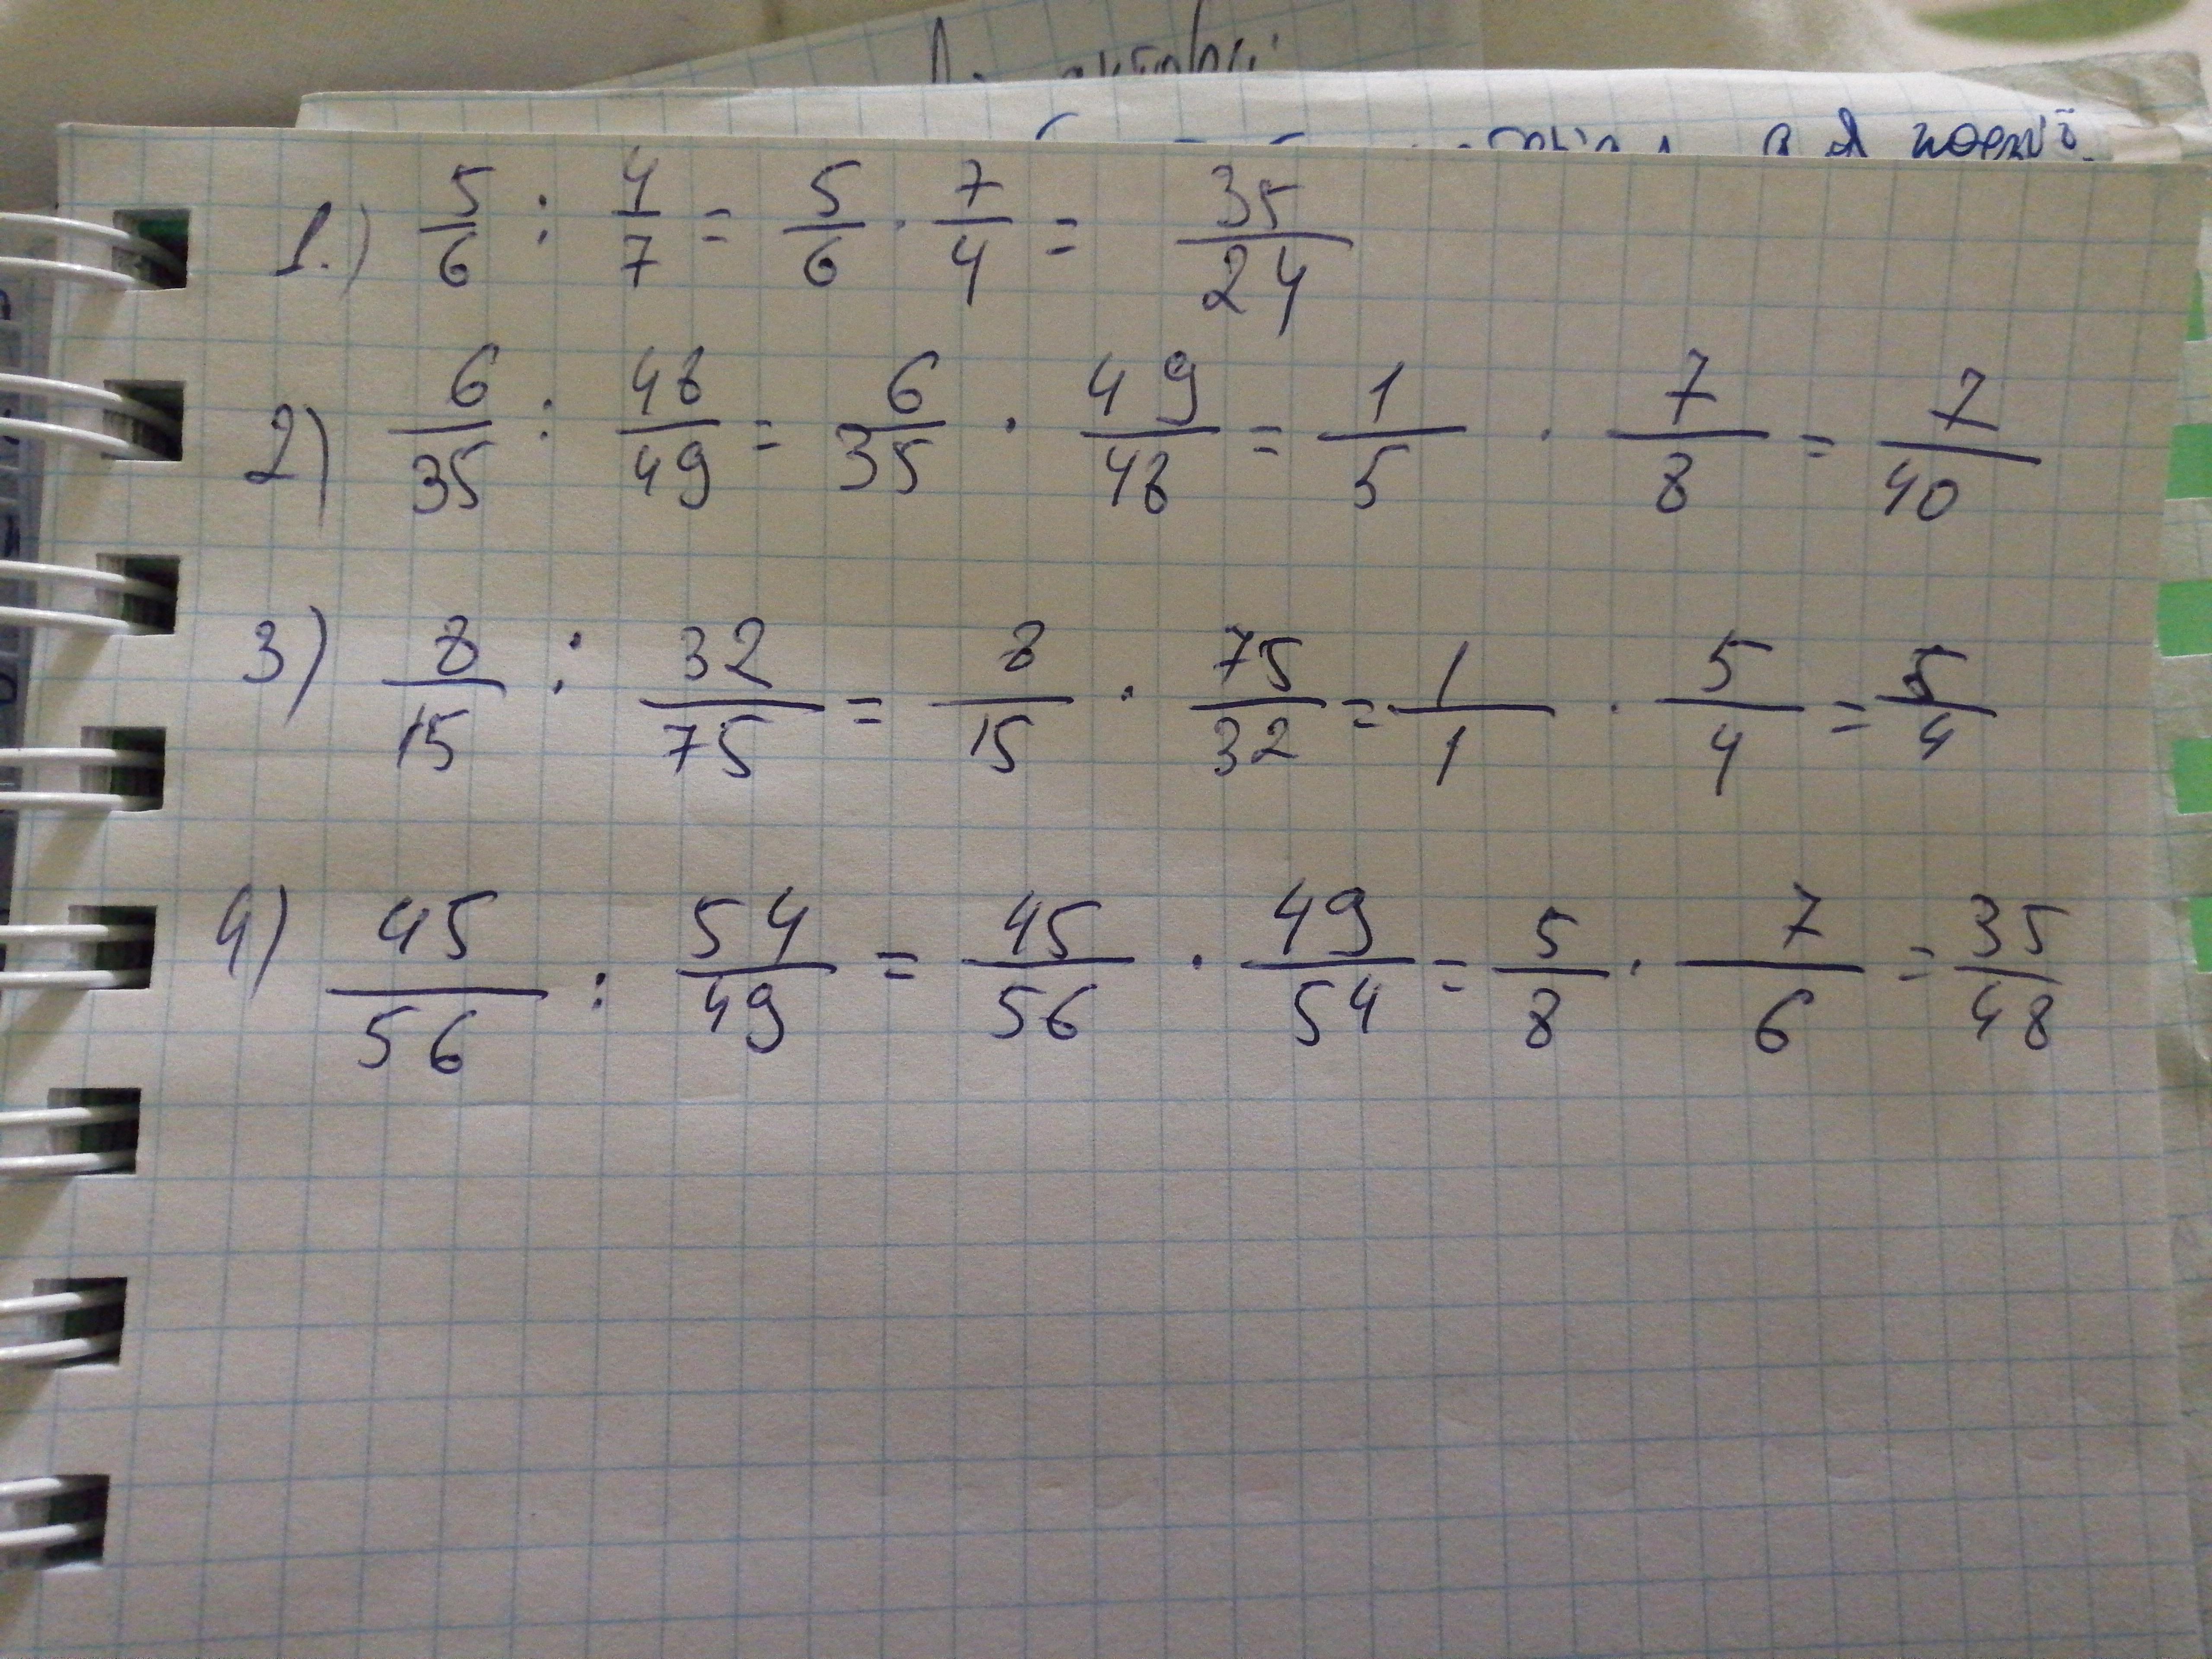 1.) 5/6 : 4/7 = 5/6 · 7/4 = 35/24
2) 6/35 : 48/49 = 6/35 · 49/48 = 1/5 · 7/8 = 7/40
3) 8/15 : 32/75 = 8/15 · 75/32 = 1/1 · 5/4 = 5/4
4) 45/56 : 54/49 = 45/56 · 49/54 = 5/8 · 7/6 = 35/48